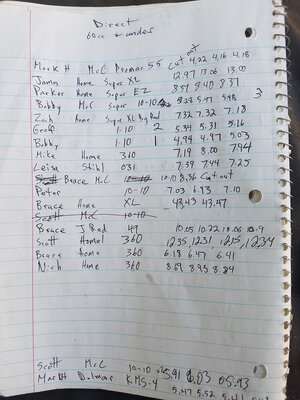 Direct
60cc & under
Mark H McC Promac 55 Cut out 4.22 4.16 4.18
James Home Super XL 12.97 13.06 13.00
Parker Home Super EZ 8.51 8.40 8.37
Bobby McC Super 10-10 5.28 5.48 3
Zach Home Super XL Big Rad 7.32 7.32 7.18
Geoff 1-10 2 5.34 5.31 5.16
Bobby 1-10 1 4.94 4.97 5.03
Mike Home 360 7.19 8.00 7.94
Leisa Stihl 031 7.39 7.44 7.25
Bruce McC 10-10 8.36 Cut out
Peter 10-10 7.03 6.93 7.10
Bruce Home XL 43.43 43.47
Scott McC 10-10
Bruce J Red 49 10.05 10.22 10.06
Scott Homel 360 12.35 12.31 12.15 12.34
Bruce Home 360 6.18 6.47 6.41
Nich Home 360 8.69 8.93 8.84
Scott McC 10-10 5.91 6.03 05.93
Mark H Dolmar KMS-4 5.47 5.52 5.41